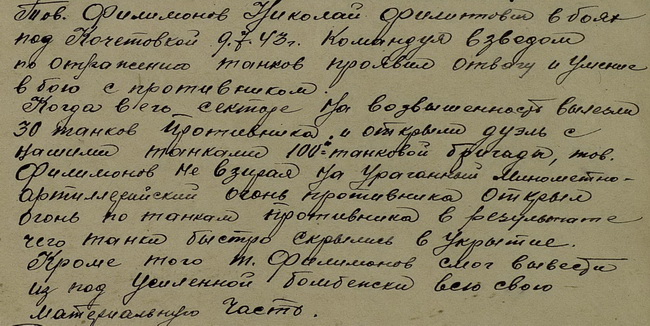 Тов. Филимонов Николай Филиппович в боях
под Кочетовкой 9.7.43г. Командуя взводом
по отражению танков проявил отвагу и умение
в бою с противником.
Когда в его секторе на возвышенность вылезли
30 танков противника и открыли дуэль с
нашими танками 100й танковой бригады, тов.
Филимонов не взирая на ураганный минометно-
артиллерийский огонь противника открыл
огонь по танкам противника в результате
чего танки быстро скрылись в укрытие.
Кроме того т. Филимонов смог вывести
из под усиленной бомбежки всю свою
материальную часть.